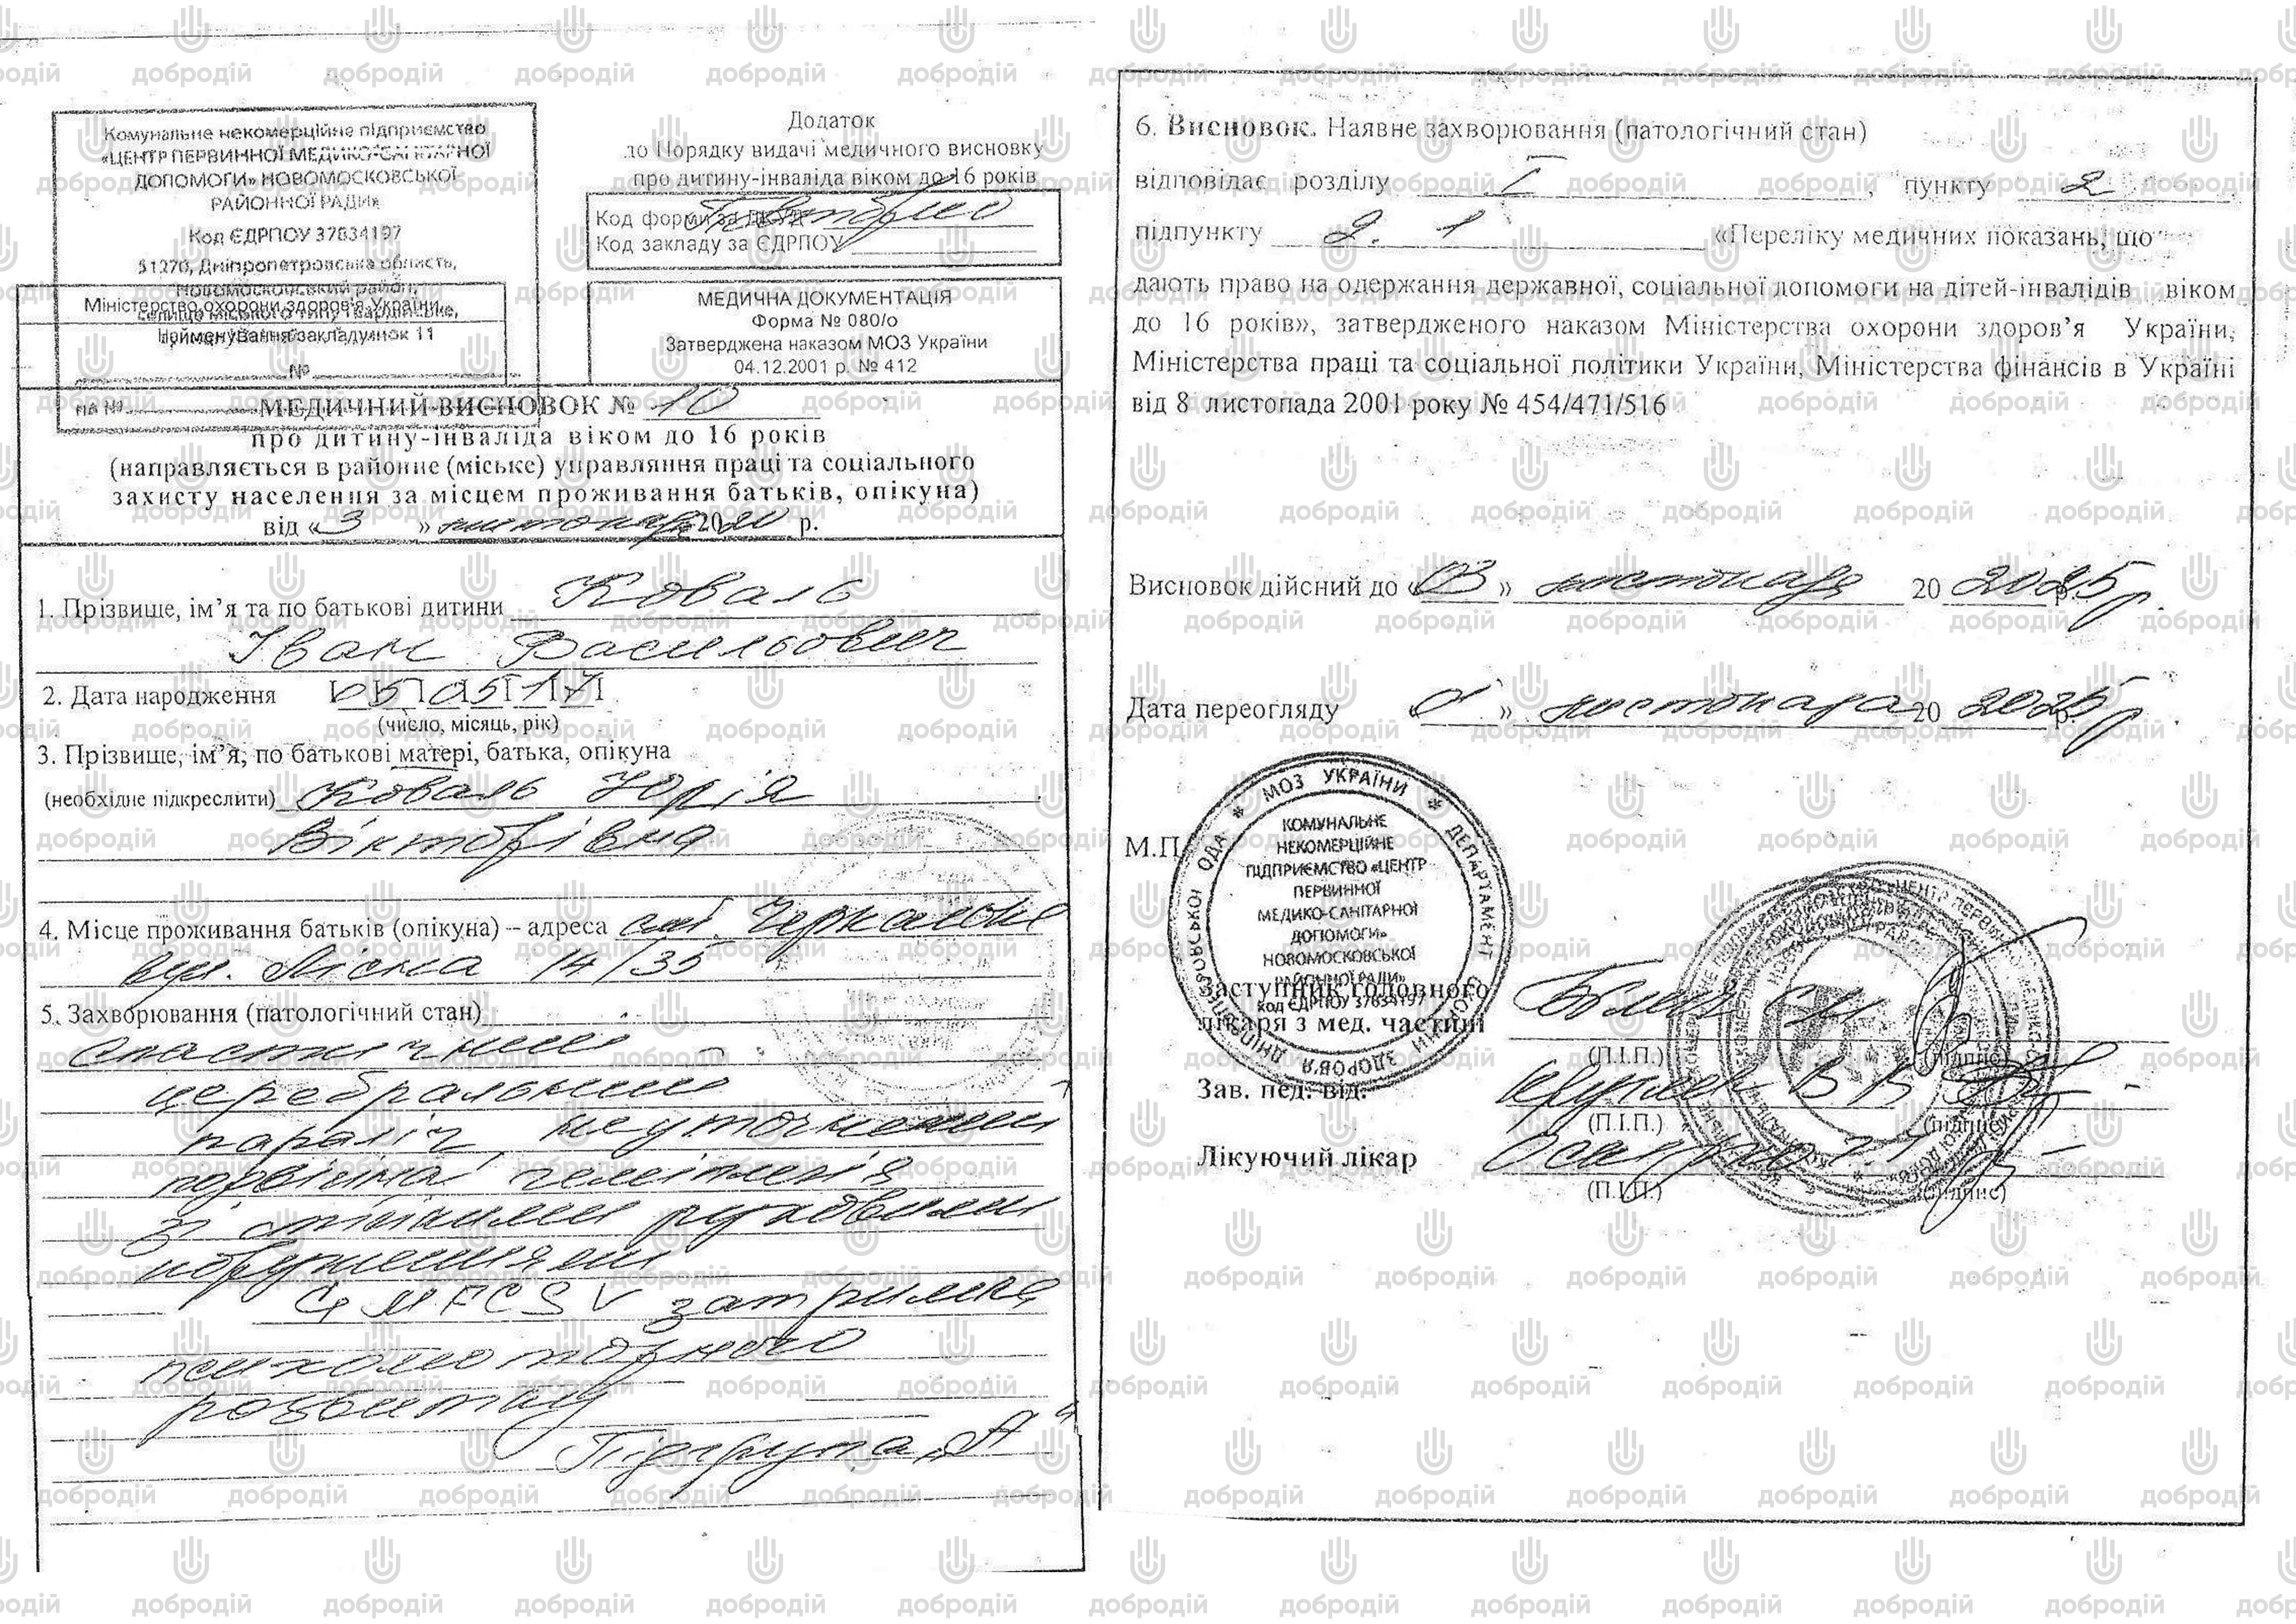 Комунальне некомерційне підприємство
«ЦЕНТР ПЕРВИННОЇ МЕДИКО-САНІТАРНОЇ
ДОПОМОГИ» НОВОМОСКОВСЬКОЇ
РАЙОННОЇ РАДИ»
Код ЄДРПОУ 37834197
51270, Дніпропетровська область,
Новомосковський район,
Міністерство охорони здоров'я України
селище міського типу Гвардійське,
Найменування закладу
№
на №
Додаток
до Порядку видачі медичного висновку
про дитину-інваліда віком до 16 років
Код форми за ДКУД
Повторно
Код закладу за ЄДРПОУ
МЕДИЧНА ДОКУМЕНТАЦІЯ
Форма № 080/о
Затверджена наказом МОЗ України
04.12.2001 р. № 412
МЕДИЧНИЙ ВИСНОВОК № 10
про дитину-інваліда віком до 16 років
(направляється в районне (міське) управляння праці та соціального
захисту населення за місцем проживання батьків, опікуна)
від «3» листопада 2020 р.
1. Прізвище, ім'я та по батькові дитини Коваль
Іван Васильович
2. Дата народження 05 05 17
(число, місяць, рік)
3. Прізвище, ім'я, по батькові матері, батька, опікуна
(необхідне підкреслити) Коваль Юрія
Вікторівна
4. Місце проживання батьків (опікуна) – адреса смт. Черкаське
вул. Лісна 14/35
5. Захворювання (патологічний стан)
Спастичний
церебральний
параліч, неуточнений
подвійна геміплегія
зі стійкими руховими
порушеннями
GMFCS V затримка
психомоторного
розвитку
Підгрупа „А"
6. Висновок. Наявне захворювання (патологічний стан)
відповідає розділу I, пункту 2
підпункту 2. 1 «Переліку медичних показань, що
дають право на одержання державної, соціальної допомоги на дітей-інвалідів віком
до 16 років», затвердженого наказом Міністерства охорони здоров'я України,
Міністерства праці та соціальної політики України, Міністерства фінансів в Україні
від 8 листопада 2001 року № 454/471/516
Висновок дійсний до «03» листопада 20 2025 р.
Дата переогляду « » листопада 20 2025 р.
М.П
МОЗ УКРАЇНИ * ДЕПАРТАМЕНТ ОХОРОНИ ЗДОРОВ'Я ДНІПРОПЕТРОВСЬКОЇ ОДА *
КОМУНАЛЬНЕ
НЕКОМЕРЦІЙНЕ
ПІДПРИЄМСТВО «ЦЕНТР
ПЕРВИННОЇ
МЕДИКО-САНІТАРНОЇ
ДОПОМОГИ»
НОВОМОСКОВСЬКОЇ
РАЙОННОЇ РАДИ»
Код ЄДРПОУ 37834197
Заступник головного
лікаря з мед. частині
(П.І.П.) (підпис)
Зав. пед. від.
(П.І.П.) (підпис)
Лікуючий лікар
(П.І.П.) (підпис)
добродій